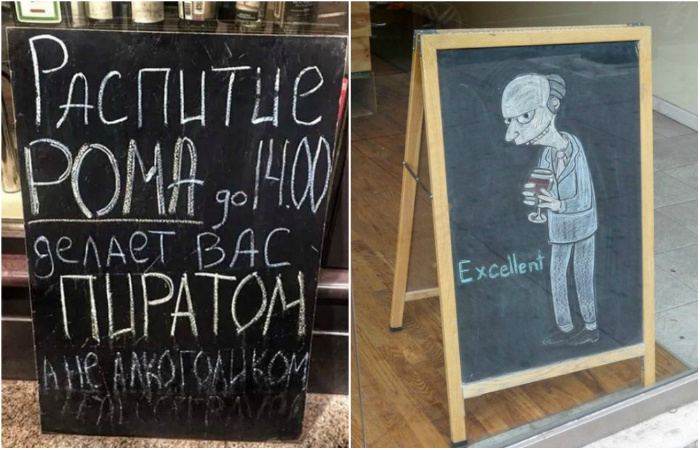 Распитие
РОМА до 14.00
делает ВАС
ПИРАТОМ
А НЕ АЛКОГОЛИКОМ
Excellent